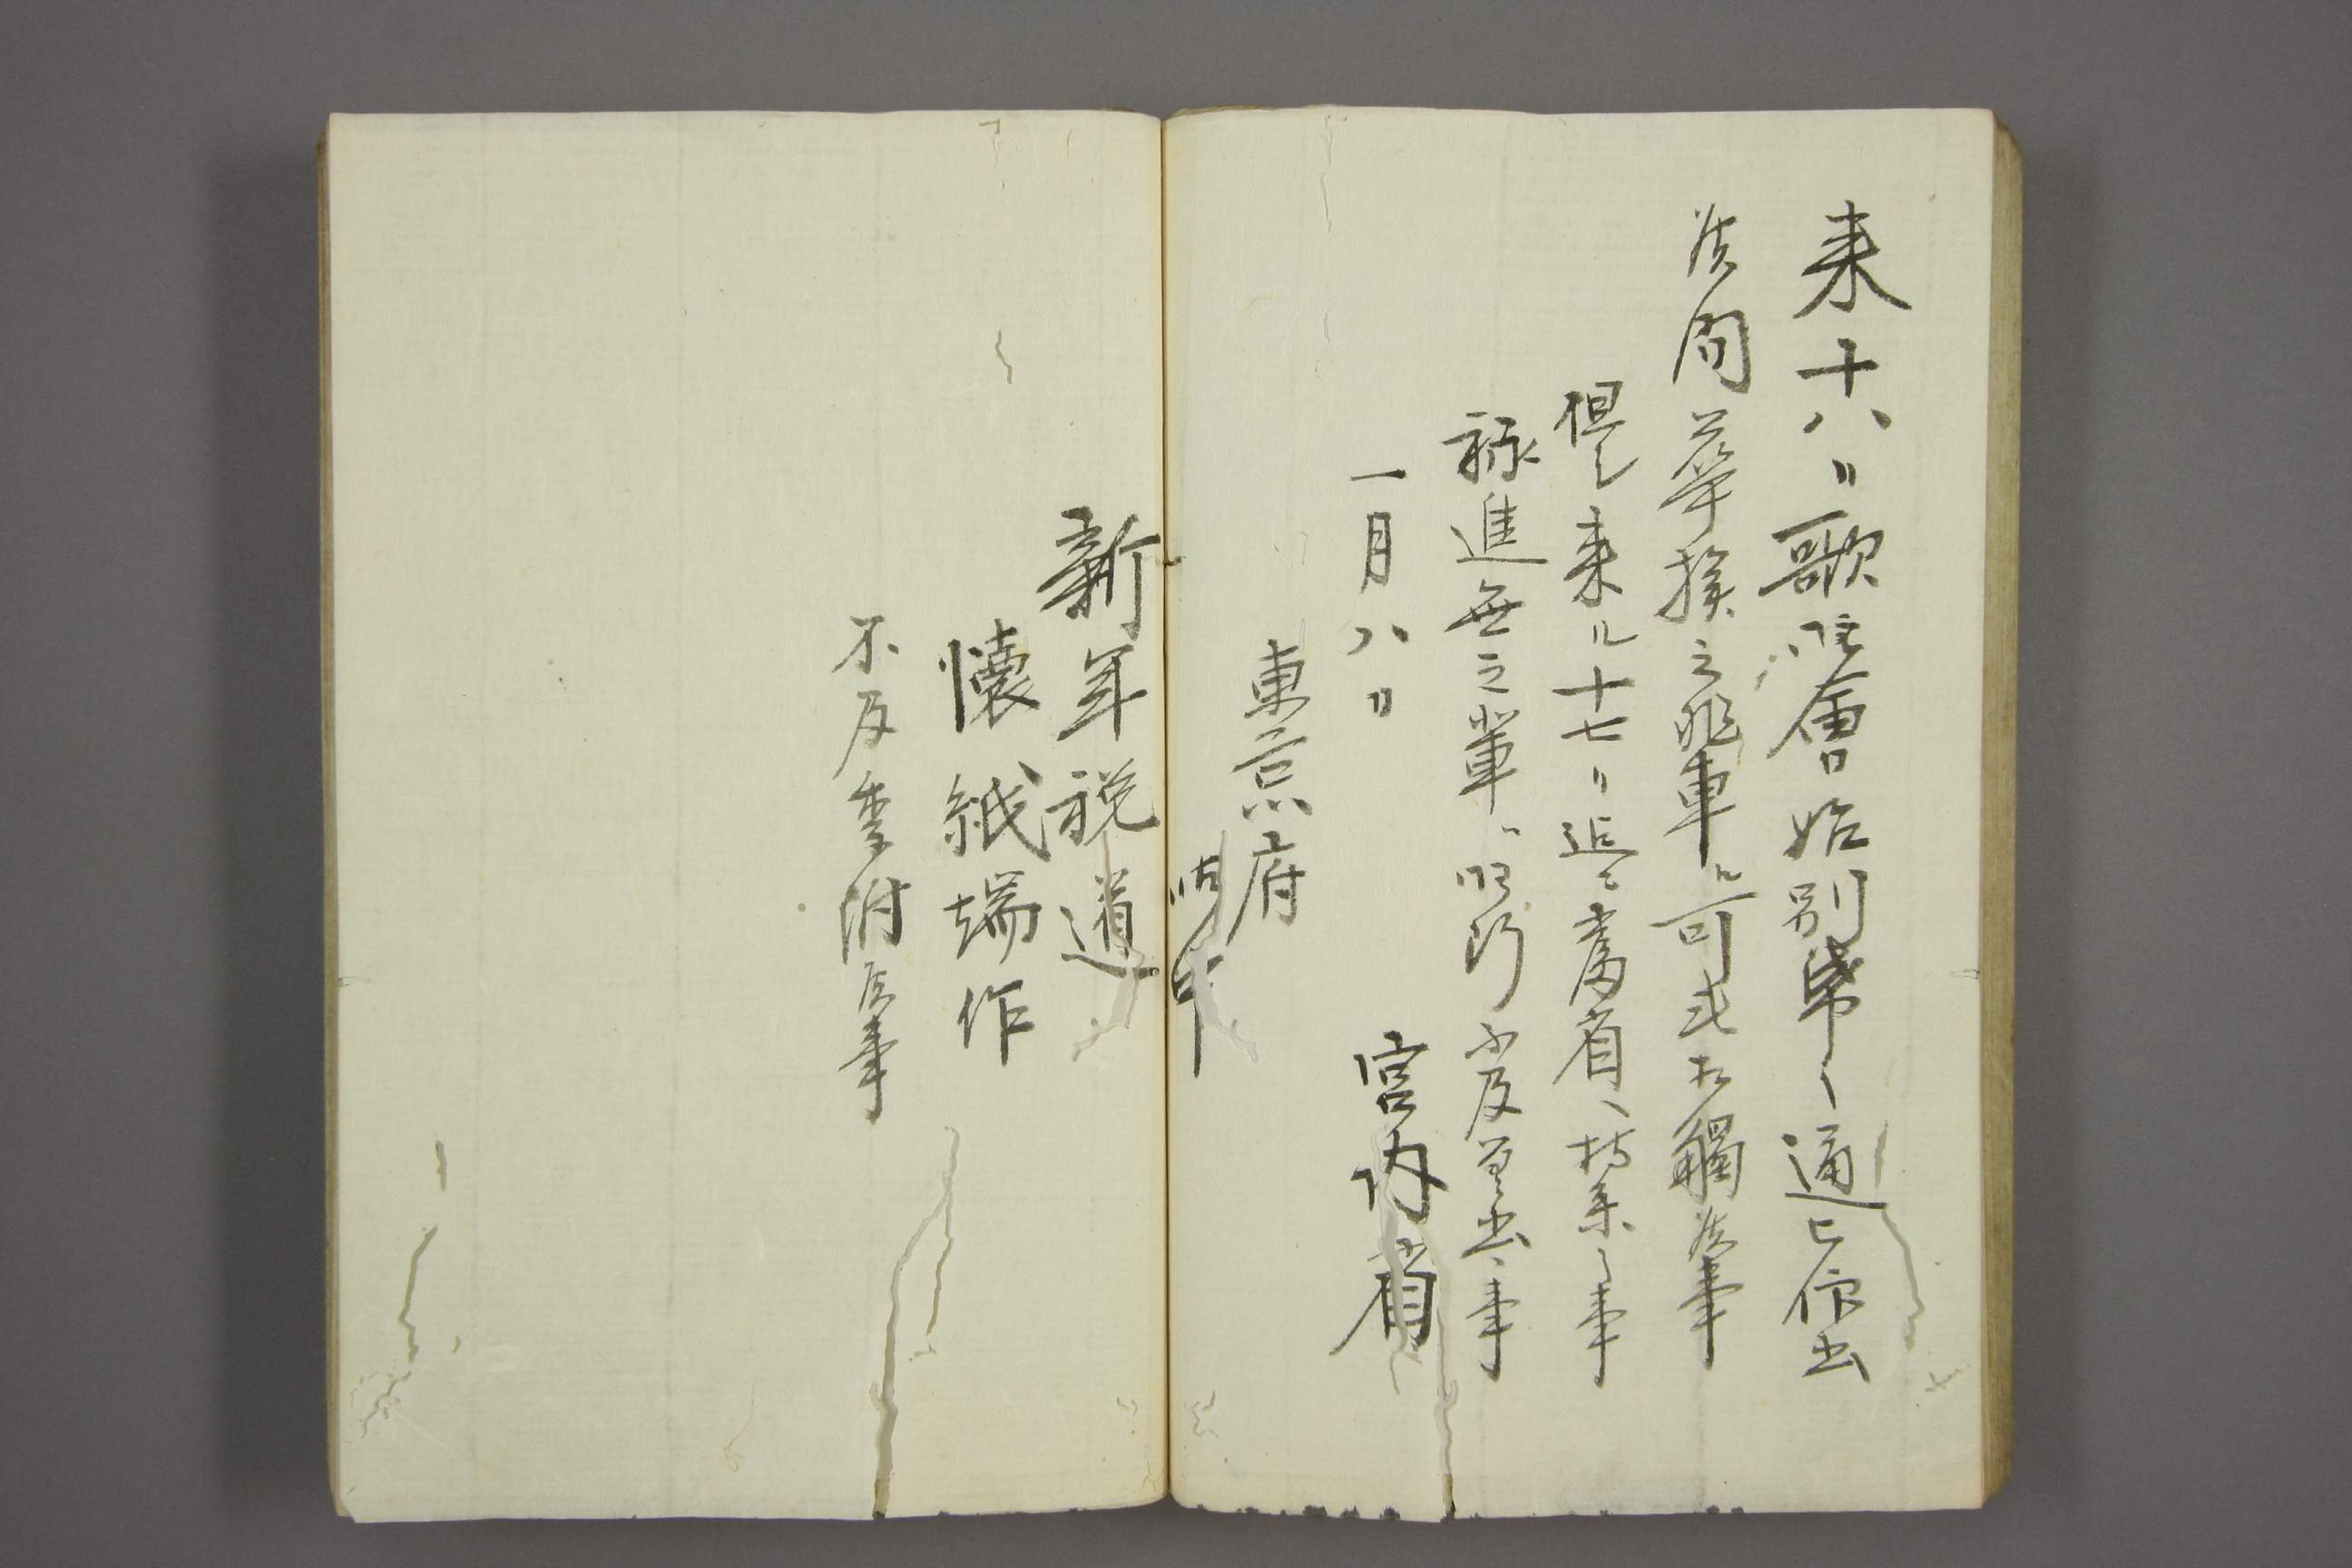 来十八日歌御會始別帋之通被仰出
候間華族之輩エ可或相觸候事
但シ来ル十七日迄ニ當省ヘ持参之事
詠進無之輩ハ御断ニ不及差出候事
一月八日
宮内省
東京府
御中
新年祝道
懐紙端作
不及重附候事